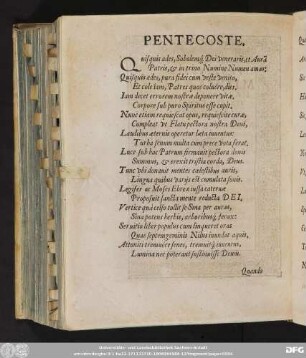 PENTECOSTE.
Quisquis ades, Sobolemq; Dei veneraris, et Aurā
Patris, & in trino Numine Numen amas;
Quisquis ades, pura fidei cum veste venito,
Et cole tum, Patres quae coluere, dies.
Jam decet errorem nostrae deponere vitae,
Corpore sub puro Spiritus esse cupit.
Nunc etiam requiescat opus, requiescite curae
Compleat ut Flatu pectora nostra Deus,
Laudibus aeternis operetur laeta juventus:
Turba senum multa cum prece vota ferat,
Luce sub hac Patrum firmavit pectora donis
Summus, & erexit tristia corda, Deus.
Tunc
Lingua quibus varijs est cumulata sonis.
Legifer ut Moses Ebraea jussa caterva
Proposuit sancta mente reducta DEI,
Vertice quā celso tollit se Sina per auras,
Sina potens herbis, arboribusq; ferax:
Servitio liber populus cum linqueret oras
Quas septemgeminis Nilus inundat aquis,
Attonitis tremuere senes, tremuitq; juventus,
Lumina nec poterant sustinuisse Deum.
Quando